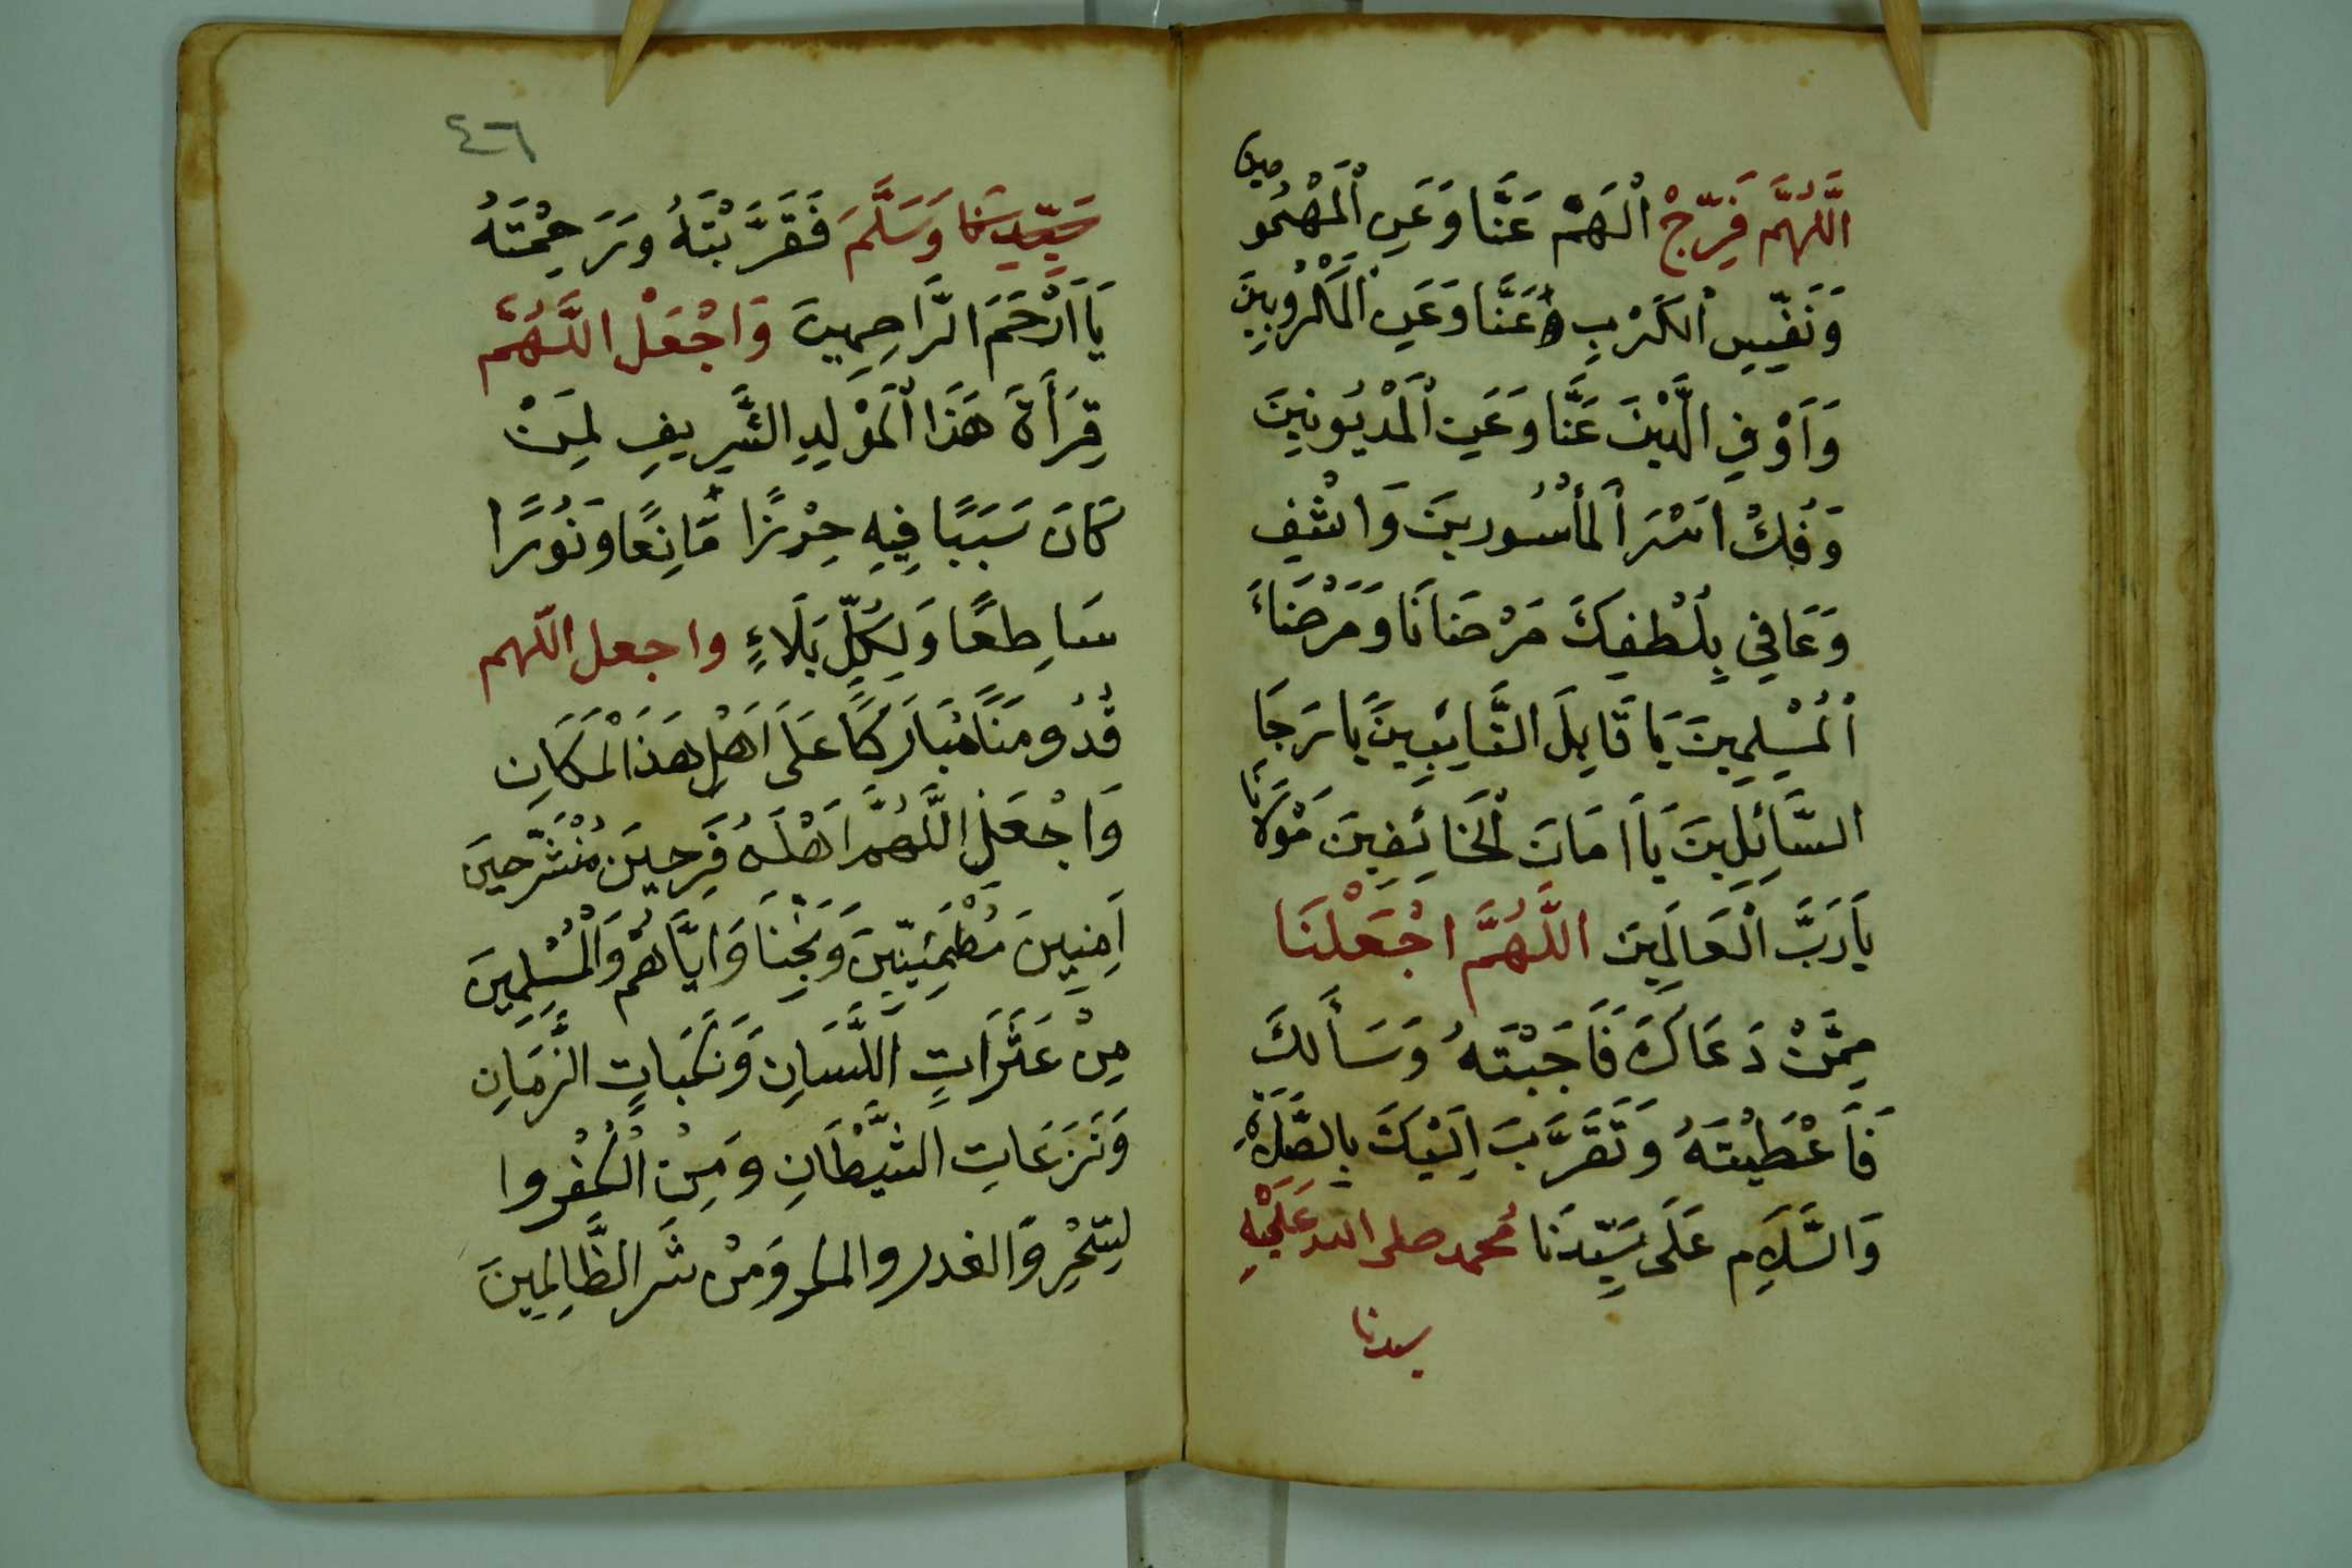 اَللّٰهُمَّ فَرِّجْ اْلهَمّ عَنَّا وَعَنِ اْلمَهْمُومين
وَنَفِّيسِ اْلكَرْبِ عَنَّا وَعَنِ اْلمَكْرُوبِينَ
وَاَوْفِ الدَّيْنَ عَنَّا وَعَنِ اْلمَدْيُونِينَ
وَفُكْ اَسْرَ اْلمأْسُورينَ وَاشْفِ
وَعَافِي بِلُطْفِكَ مَرْضَانَا وَمَرْضَاءَ
اْلمُسْلِمِينَ يَا قَابِلَ التَّايِبِينَ يا رَجَا
السَّائِلِينَ يَا اَمَانَ اْلخَائِفِينَ مَوْلَانَا
يَا رَبَّ اْلعَالَمِينَ اللَّهُمَّ اجْعَلْنَا
مِمَّنْ دَعَاكَ فَاَجَبْتَهُ وَسَأَلَكَ
فَاَعْطَيْتَهُ وَتَقَرَّبَ اِلَيْكَ بِالصَّلَاةِ
وَالسَّلَامِ عَلَى سَيِّدِنَا مُحمد صلى الله عَلَيْهِ
سيدنا
٤٦
سَيِّدِنَا وَسَلَّمَ فَقَرَّبْتَهُ وَرَحِمْتَهُ
يَا اَرْحَمَ الرَّاحِمِينَ وَاجْعَلْ اللَّهُمَّ
قِرَأَةَ هَذَا اْلمَوْلِدِ الشَّرِيفِ لِمَنْ
كَانَ سَبَبًا فِيهِ حِرْزًا مَّانِعًا وَنُورًا
سَاطِعًا وَلِكُلِّ بَلَاءٍ واجعل اللهم
قُدُومَنَا مُبَارَكًا عَلَى اَهْلِ هَذَا اْلمَكَانِ
وَاجْعَلِ اللَّهُمَّ اَهْلَهُ فَرِحِينَ مُنْشَرِحِينَ
اَمِنِينَ مُطْمَئِنِّينَ وَنَجِّنَا وَايَّاهُمْ وَاْلمُسْلِمِينَ
مِنْ عَثَرَاتِ اللِّسَانِ وَنَكَبَاتِ الزَّمَانِ
وَنَزَعَاتِ الشَّيْطَانِ وَمِنْ اْلكُفْرِ وا
لسِّحْرِ وَالغدر والمكر وَمِنْ شَر الظَّالِمِينَ